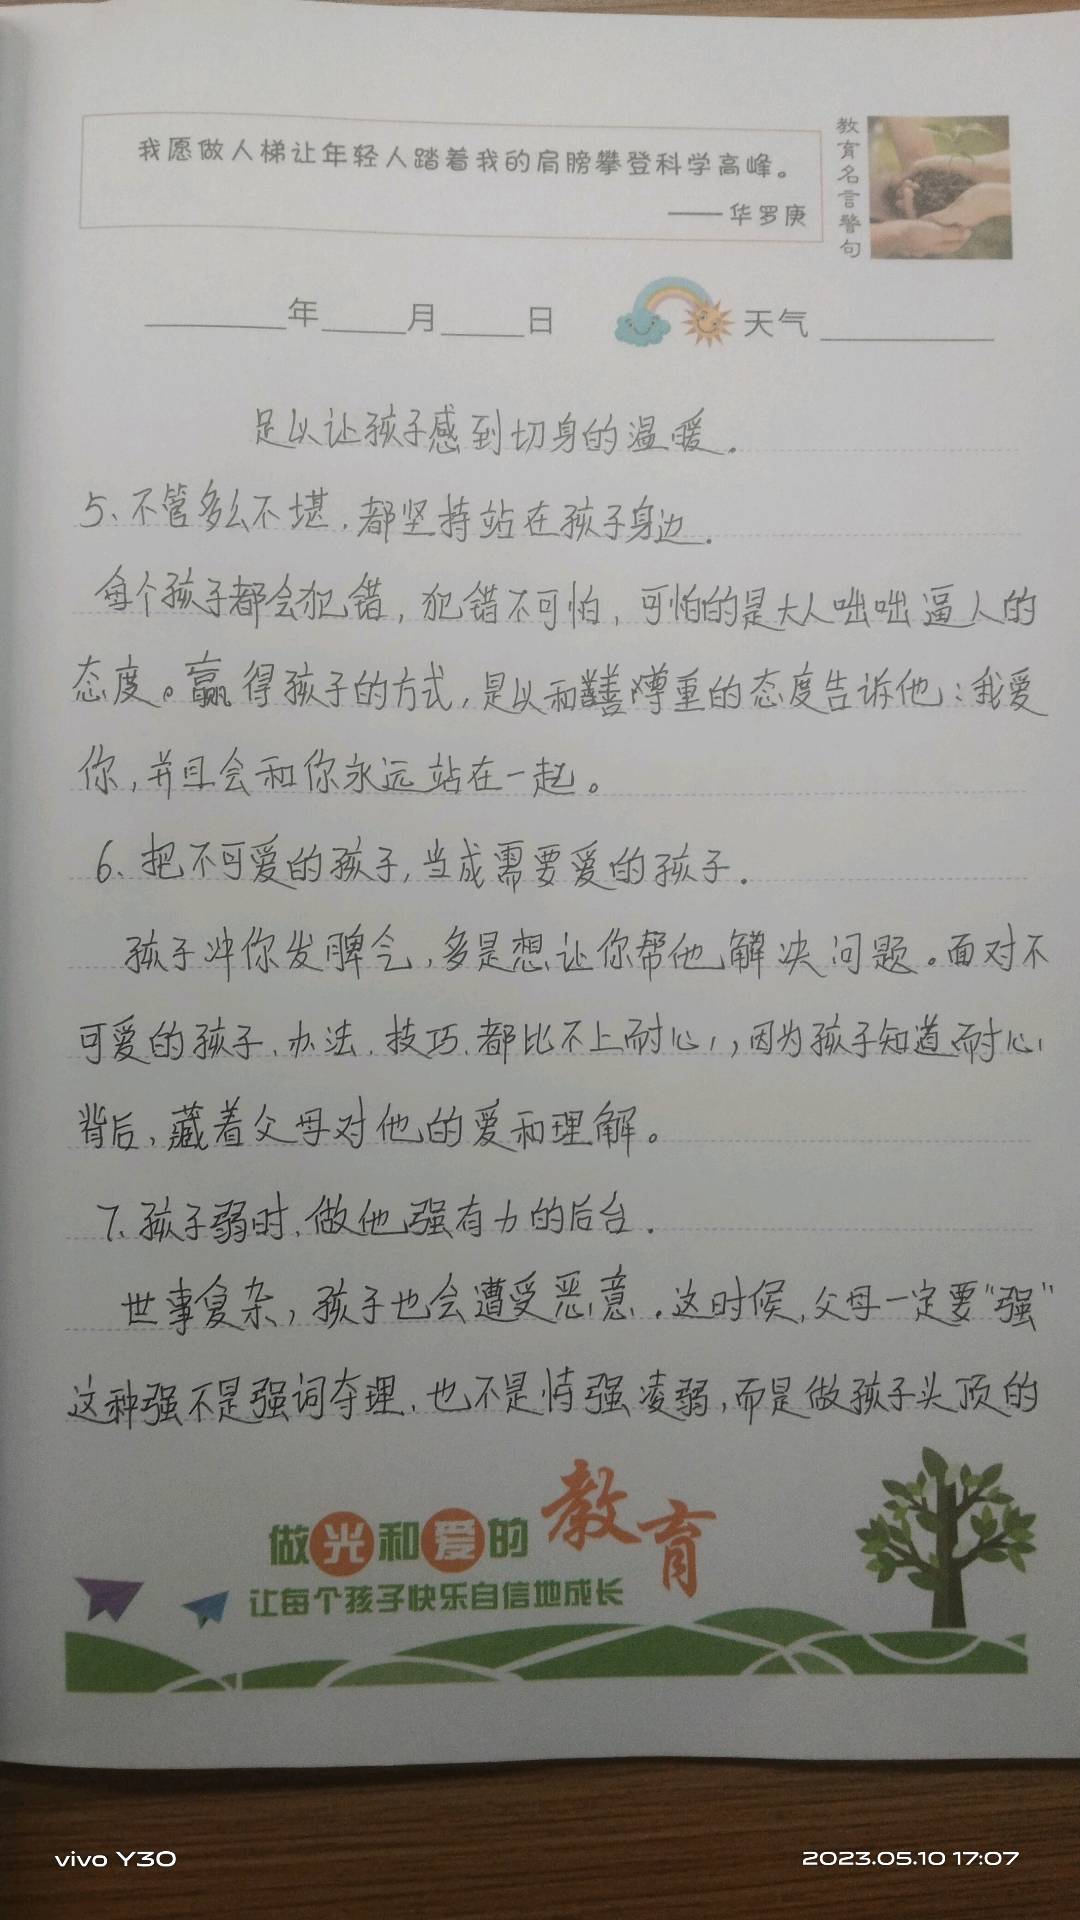 我愿做人梯让年轻人踏着我的肩膀攀登科学高峰。
——华罗庚
教育名言警句
年 月 日 天气
足以让孩子感到切身的温暖.
5、不管多么不堪,都坚持站在孩子身边.
每个孩子都会犯错,犯错不可怕,可怕的是大人咄咄逼人的
态度。赢得孩子的方式,是以和善尊重的态度告诉他:我爱
你,并且会和你永远站在一起。
6、把不可爱的孩子,当成需要爱的孩子.
孩子冲你发脾气,多是想让你帮他解决问题。面对不
可爱的孩子、办法、技巧、都比不上耐心,因为孩子知道耐心
背后,藏着父母对他的爱和理解。
7、孩子弱时,做他强有力的后台.
世事复杂,孩子也会遭受恶意.这时候,父母一定要“强”
这种强不是强词夺理,也不是恃强凌弱,而是做孩子头顶的
做光和爱的教育
让每个孩子快乐自信地成长
vivo Y30
2023.05.10 17:07